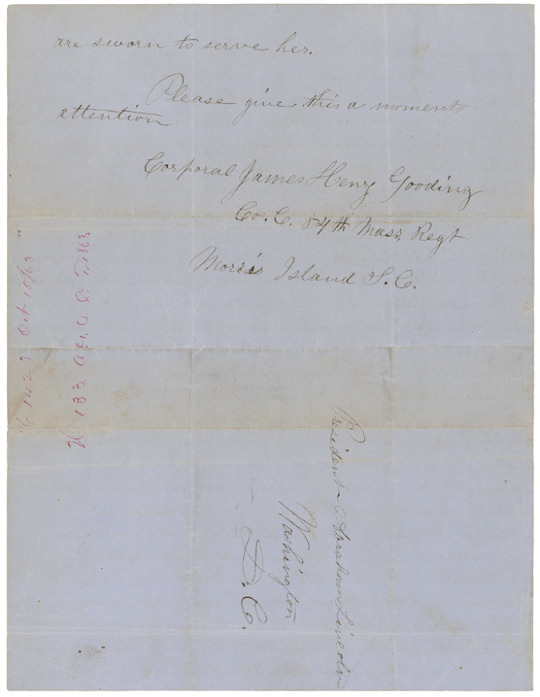 are sworn to serve her.
Please give this a moments
attention
Corporal James Henry Gooding
Co. C. 54th Mass. Regt
Morris Island S. C.
Oct 10/63
133
President Abraham Lincoln
Washington
D. C.